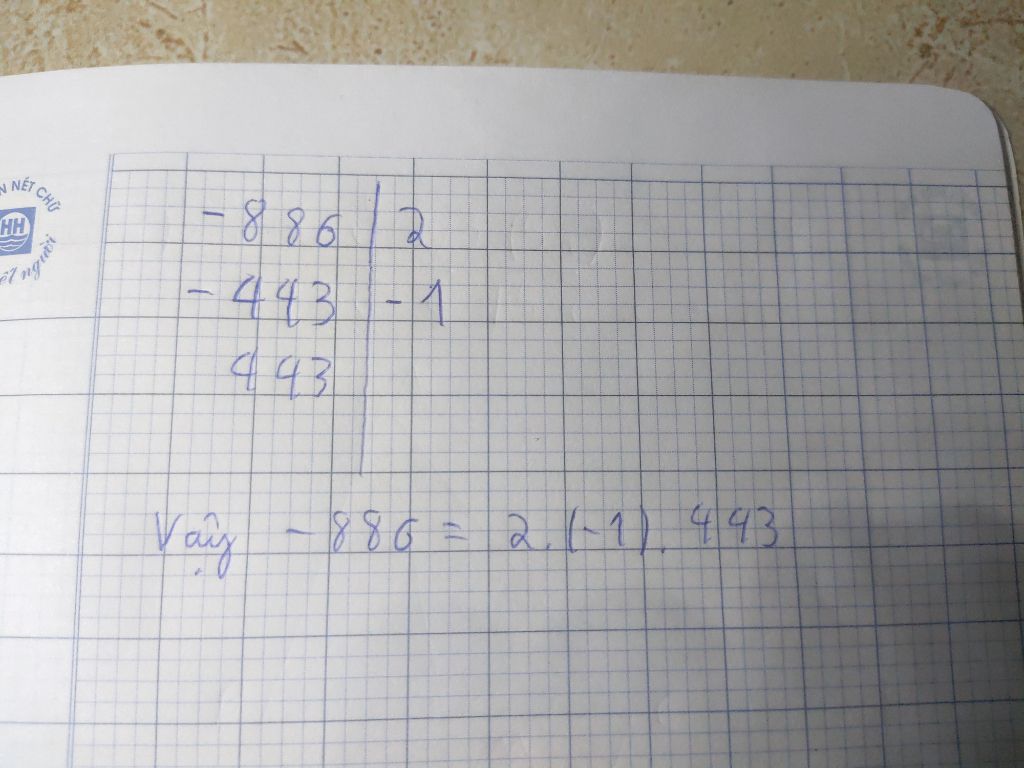 N NÉT CHỮ
HH
ết người
-886 | 2
-443 | -1
443 |
Vậy -886 = 2.(-1).443